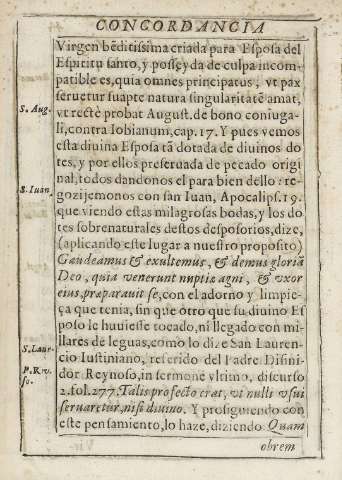 CONCORDANCIA
Virgen bẽditissima criada para Esposa del
Espiritu santo, y posseyda de culpa incom-
patible es, quia omnes principatus, vt pax
seruetur suapte natura singularitatẽ amat,
vt rectè probat August. de bono coniuga-
li, contra Iobianum, cap. 17. Y pues vemos
esta diuina Esposa tã dotada de diuinos do
tes, y por ellos preseruada de pecado origi
nal, todos dandonos el para bien dello: re-
gozijemonos con san Iuan, Apocalips. 19.
que viendo estas milagrosas bodas, y los do
tes sobrenaturales destos desposorios, dize,
(aplicando este lugar a nuestro proposito)
Gaudeamus & exultemus, & demus gloriã
Deo, quia venerunt nuptiæ agni, & vxor
eius, præparauit se, con el adorno y limpie-
ça que tenia, sin que otro que su diuino Es
poso le huuiesse tocado, ni llegado con mi-
llares de leguas, como lo dize San Lauren-
cio Iustiniano, referido del Padre Disini-
dor Reynoso, in sermone vltimo, discurso
2. fol. 277. Talis profecto erat, vt nulli vsui
seruaretur, nisi diuino. Y prosiguiendo con
este pensamiento, lo haze, diziendo Quam
obrem
S. Aug.
S. Iuan
S. Laur.